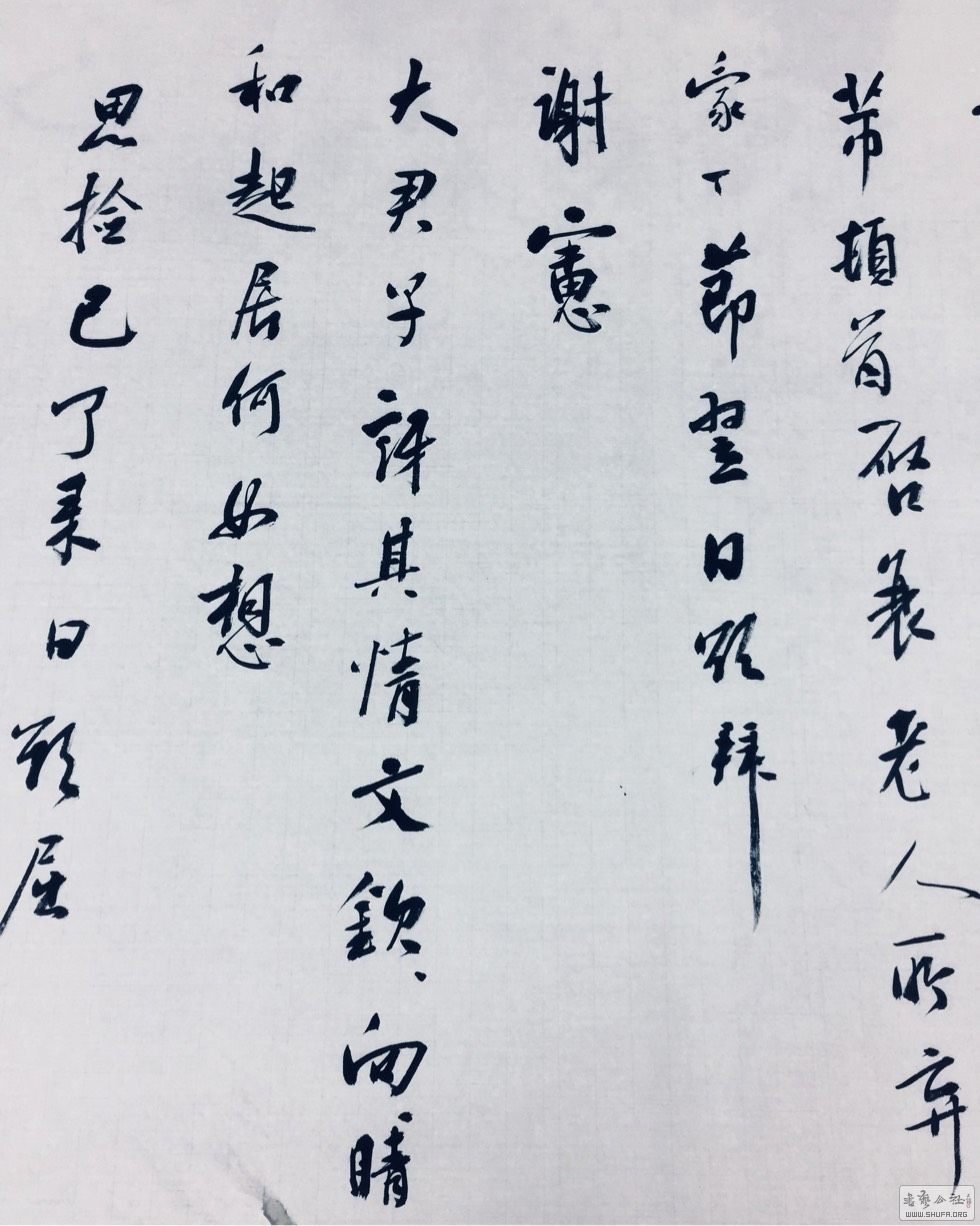 芾頓首啓衰老人所弃
家丁節翌日頋拜
謝憲
大君子訝其情文欽欽向晴
和起居何如想
思捡已了来日頋屈
書藝公社
WWW.SHUFA.ORG